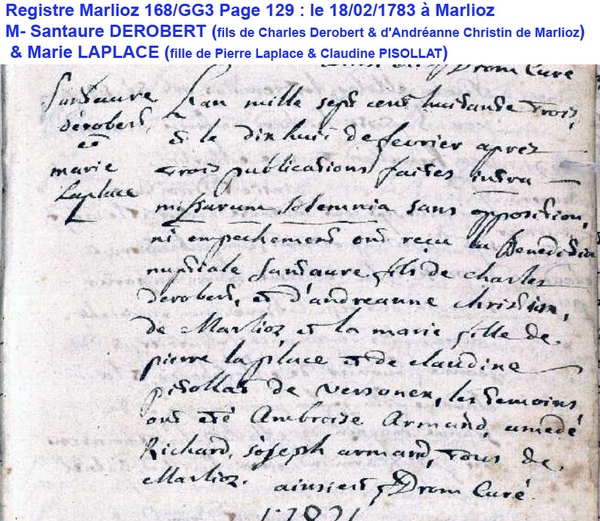 Registre Marlioz 168/GG3 Page 129 : le 18/02/1783 à Marlioz
M- Santaure DEROBERT (fils de Charles Derobert & d'Andréanne Christin de Marlioz)
& Marie LAPLACE (fille de Pierre Laplace & Claudine PISOLLAT)
Drom Curé
Santaure
dérobert
et
marie
Laplace
L'an mille sept cent huitante trois,
& le dix huit de fevrier après
trois publications faites intra
missarum solemnia sans opposition,
ni empechement ont reçu la Benediction
nuptiale Santaure fils de charles
derobert, et d'andreanne christin,
de Marlioz et la marie fille de
pierre la place et de claudine
pisollat de versonex, les temoins
ont été Ambroise Armand, amedé
Richard, joseph armand, tous de
Marlioz. ainsi est Drom Curé